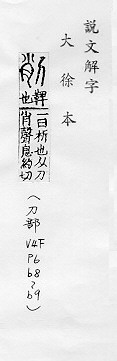 說文解字
大徐本
削
鞞也
一曰析也从刀
肖聲息約切
(刀部 V4F P6b8~b9)